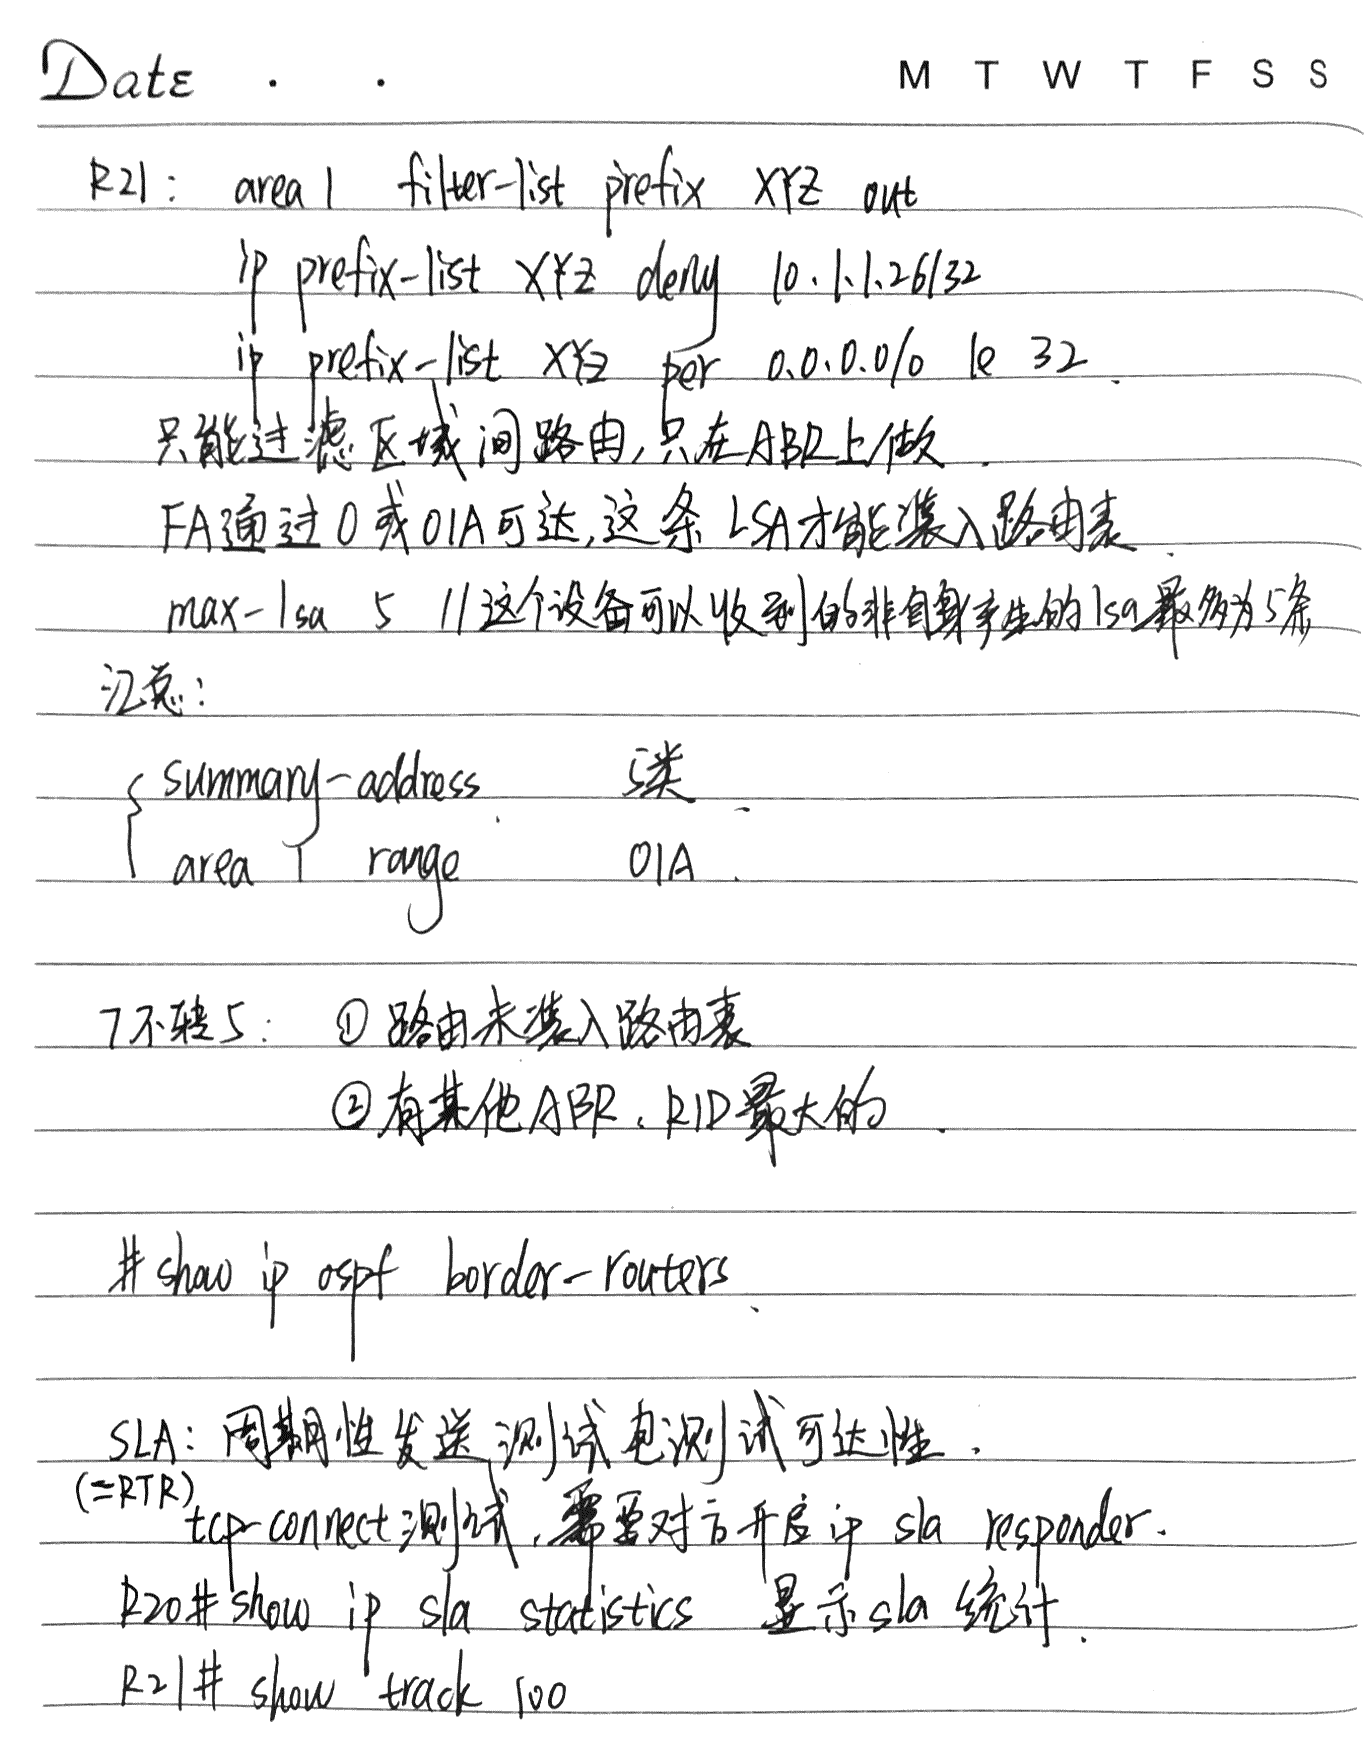 Date . . M T W T F S S
R21: area 1 filter-list prefix XYZ out
ip prefix-list XYZ deny 10.1.1.26/32
ip prefix-list XYZ per 0.0.0.0/0 le 32.
只能过滤区域间路由,只在ABR上做.
FA通过O或OIA可达,这条LSA才能装入路由表.
max-lsa 5 //这个设备可以收到的非自身产生的lsa最多为5条
汇总:
summary-address. 5类.
area 1 range OIA.
7不转5: ①路由未装入路由表
②有其他ABR,RID最大的.
#show ip ospf border-routers.
SLA: 周期性发送测试包测试可达性.
(=RTR)
tcp-connect测试,需要对方开启ip sla responder.
R20#show ip sla statistics 显示sla统计.
R21# show track 100